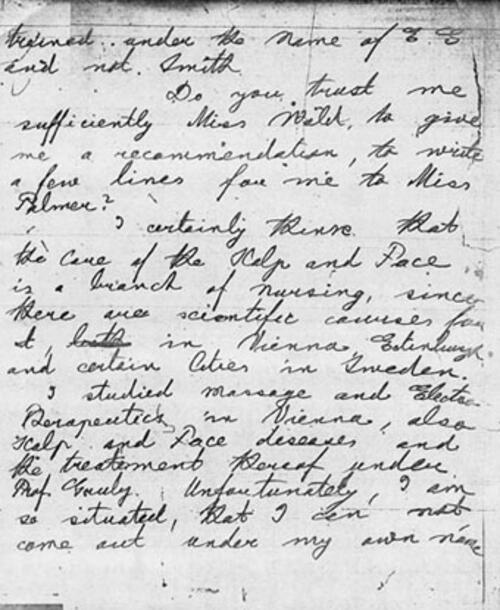 trained under the name of E G
and not Smith
Do you trust me
sufficiently Miss Wald, to give
me a recommendation, to write
a few lines for me to Miss
Palmer?
I certainly think that
the care of the Scalp and Face
is a branch of nursing, since
there are scientific courses for
it, in Vienna, Edinburgh
and certain cities in Sweden.
I studied massage and Electro
Therapeutics in Vienna, also
Scalp and Face diseases and
the treatement thereof under
Prof. Unfortunately, I am
so situated, that I can not
come out under my own name